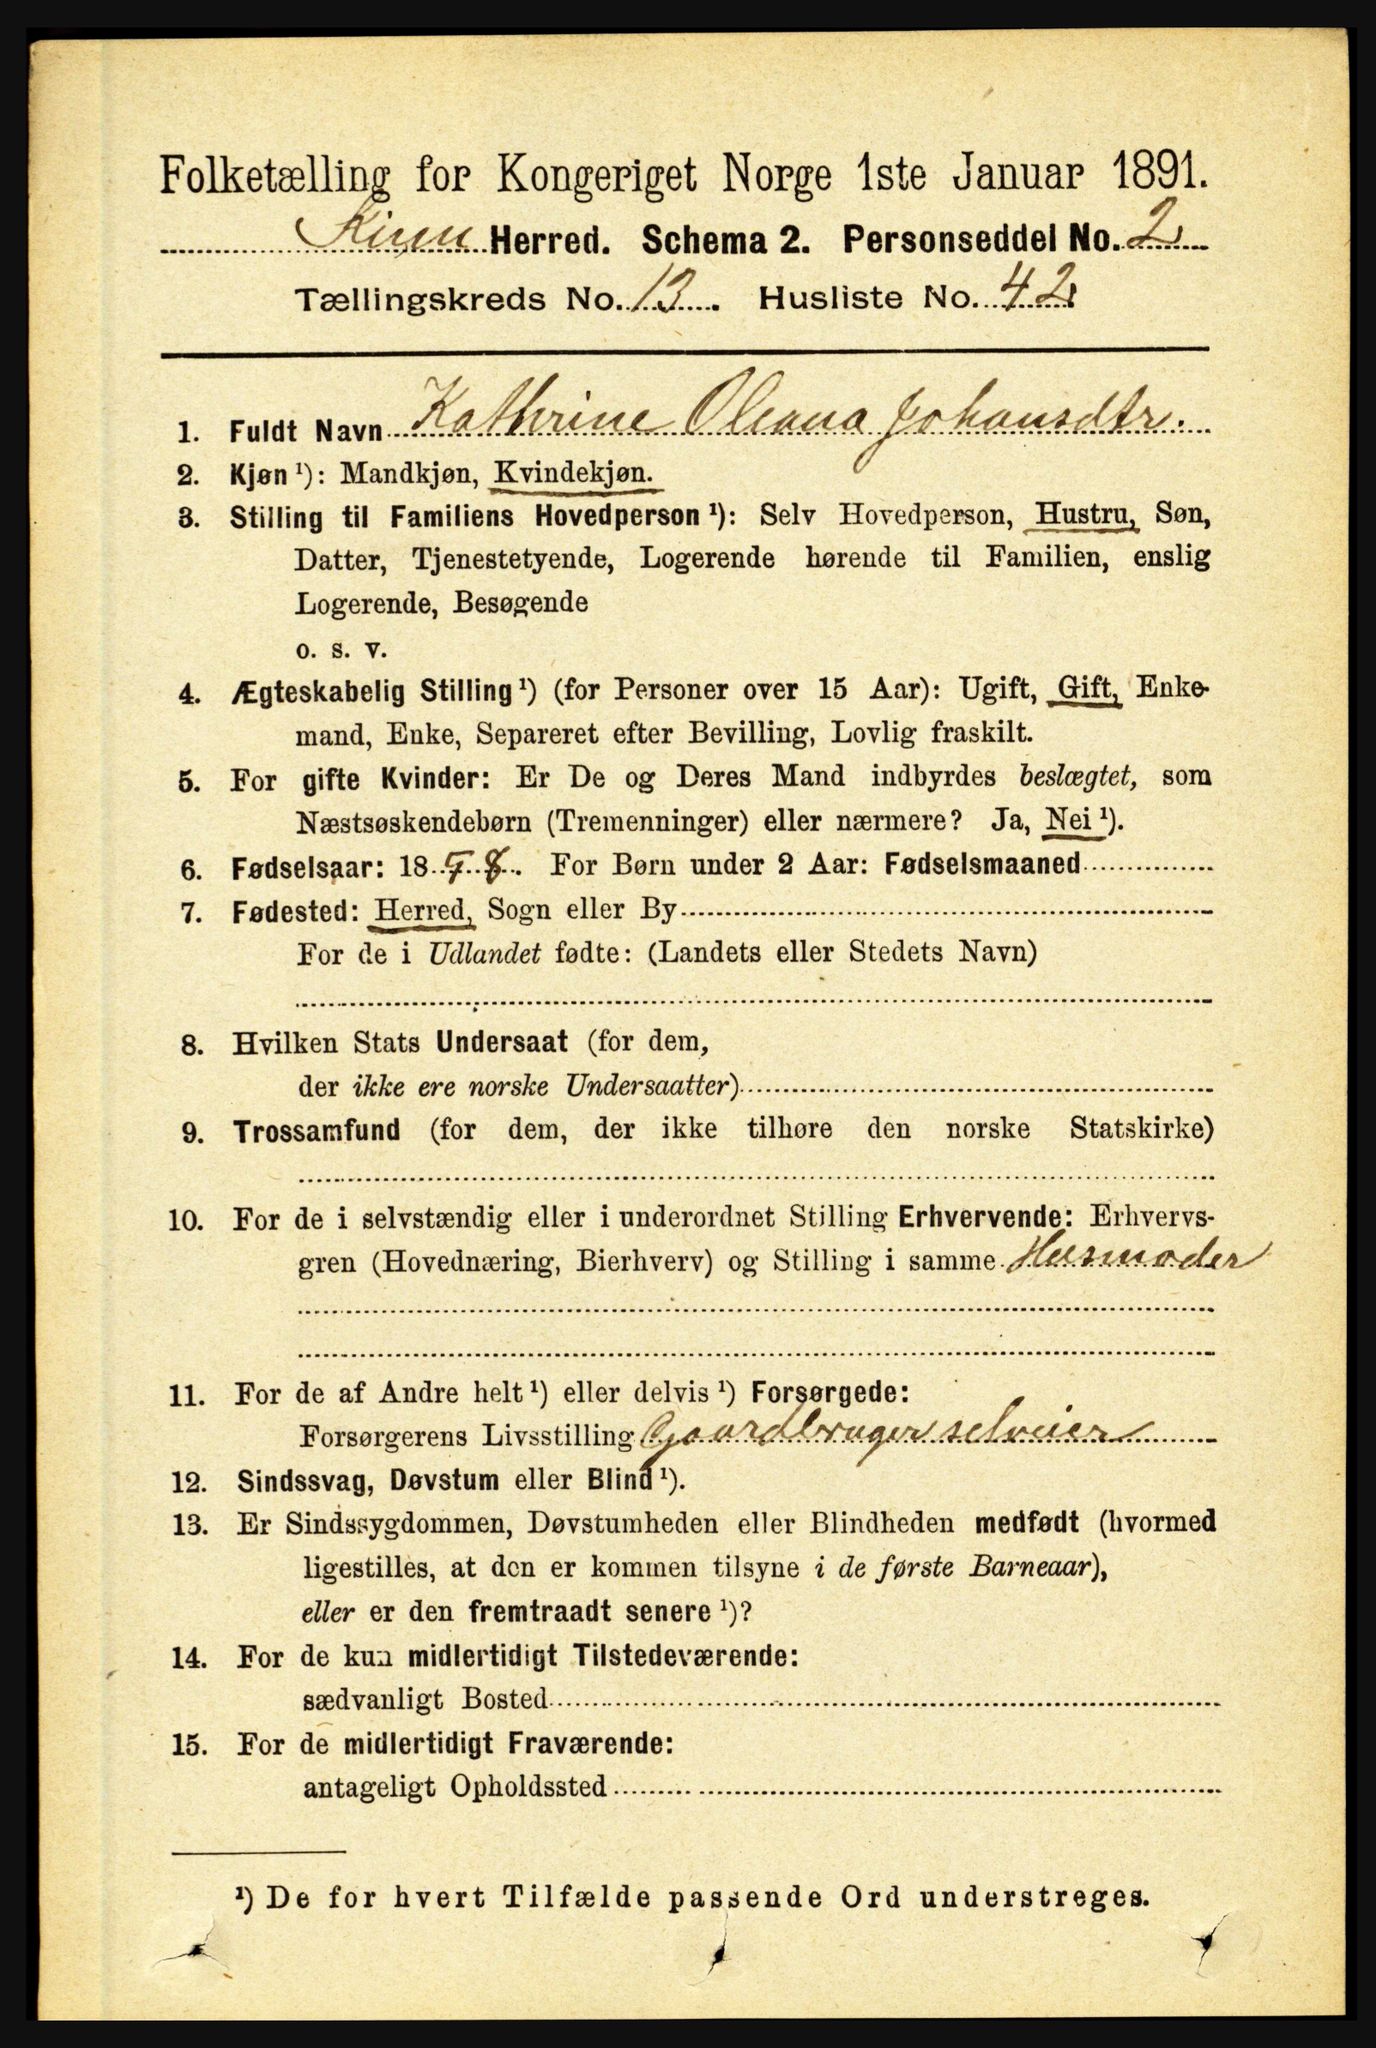 Folketælling for Kongeriget Norge 1ste Januar 1891.
Kinn Herred. Schema 2. Personseddel No. 2
Tællingskreds No. 13. Husliste No. 42
1. Fuldt Navn Kathrine Oleana Johansdtr.
2. Kjøn ¹): Mandkjøn, Kvindekjøn.
3. Stilling til Familiens Hovedperson ¹): Selv Hovedperson, Hustru, Søn,
Datter, Tjenestetyende, Logerende hørende til Familien, enslig
Logerende, Besøgende
o. s. v.
4. Ægteskabelig Stilling ¹) (for Personer over 15 Aar): Ugift, Gift, Enke-
mand, Enke, Separeret efter Bevilling, Lovlig fraskilt.
5. For gifte Kvinder: Er De og Deres Mand indbyrdes beslægtet, som
Næstsøskendebørn (Tremenninger) eller nærmere? Ja, Nei ¹).
6. Fødselsaar: 1858. For Børn under 2 Aar: Fødselsmaaned
7. Fødested: Herred, Sogn eller By
For de i Udlandet fødte: (Landets eller Stedets Navn)
8. Hvilken Stats Undersaat (for dem,
der ikke ere norske Undersaatter)
9. Trossamfund (for dem, der ikke tilhøre den norske Statskirke)
10. For de i selvstændig eller i underordnet Stilling Erhvervende: Erhvervs-
gren (Hovednæring, Bierhverv) og Stilling i samme Husmoder
11. For de af Andre helt ¹) eller delvis ¹) Forsørgede:
Forsørgerens Livsstilling Gaardbruger selveier
12. Sindssvag, Døvstum eller Blind ¹).
13. Er Sindssygdommen, Døvstumheden eller Blindheden medfødt (hvormed
ligestilles, at den er kommen tilsyne i de første Barneaar),
eller er den fremtraadt senere ¹)?
14. For de kun midlertidigt Tilstedeværende:
sædvanligt Bosted
15. For de midlertidigt Fraværende:
antageligt Opholdssted
¹) De for hvert Tilfælde passende Ord understreges.